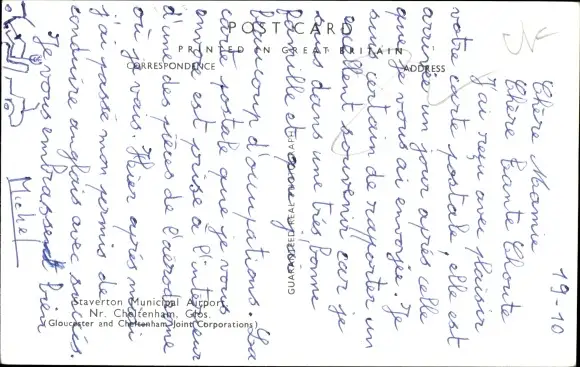 POST CARD
PRINTED IN GREAT BRITAIN
CORRESPONDENCE
ADDRESS
GUARANTEED REAL
Staverton Municipal Airport
Nr. Cheltenham, Glos.
(Gloucester and Cheltenham Joint Corporations)
19-10
Chère Mamie
Chère tante Cloute
J'ai reçu avec plaisir
votre carte postale, elle est
arrivée un jour après celle
que je vous ai envoyée. Je
suis certain de rapporter un
excellent souvenir car je
suis dans une très bonne
famille et
beaucoup d'occupations. La
carte postale que je vous
envoie est prise à l'intérieur
d'une des pièces de l'aérodrome
où je vais. Hier après midi
j'ai passé mon permis de
conduire anglais avec succès.
Je vous embrasse bien
Michel